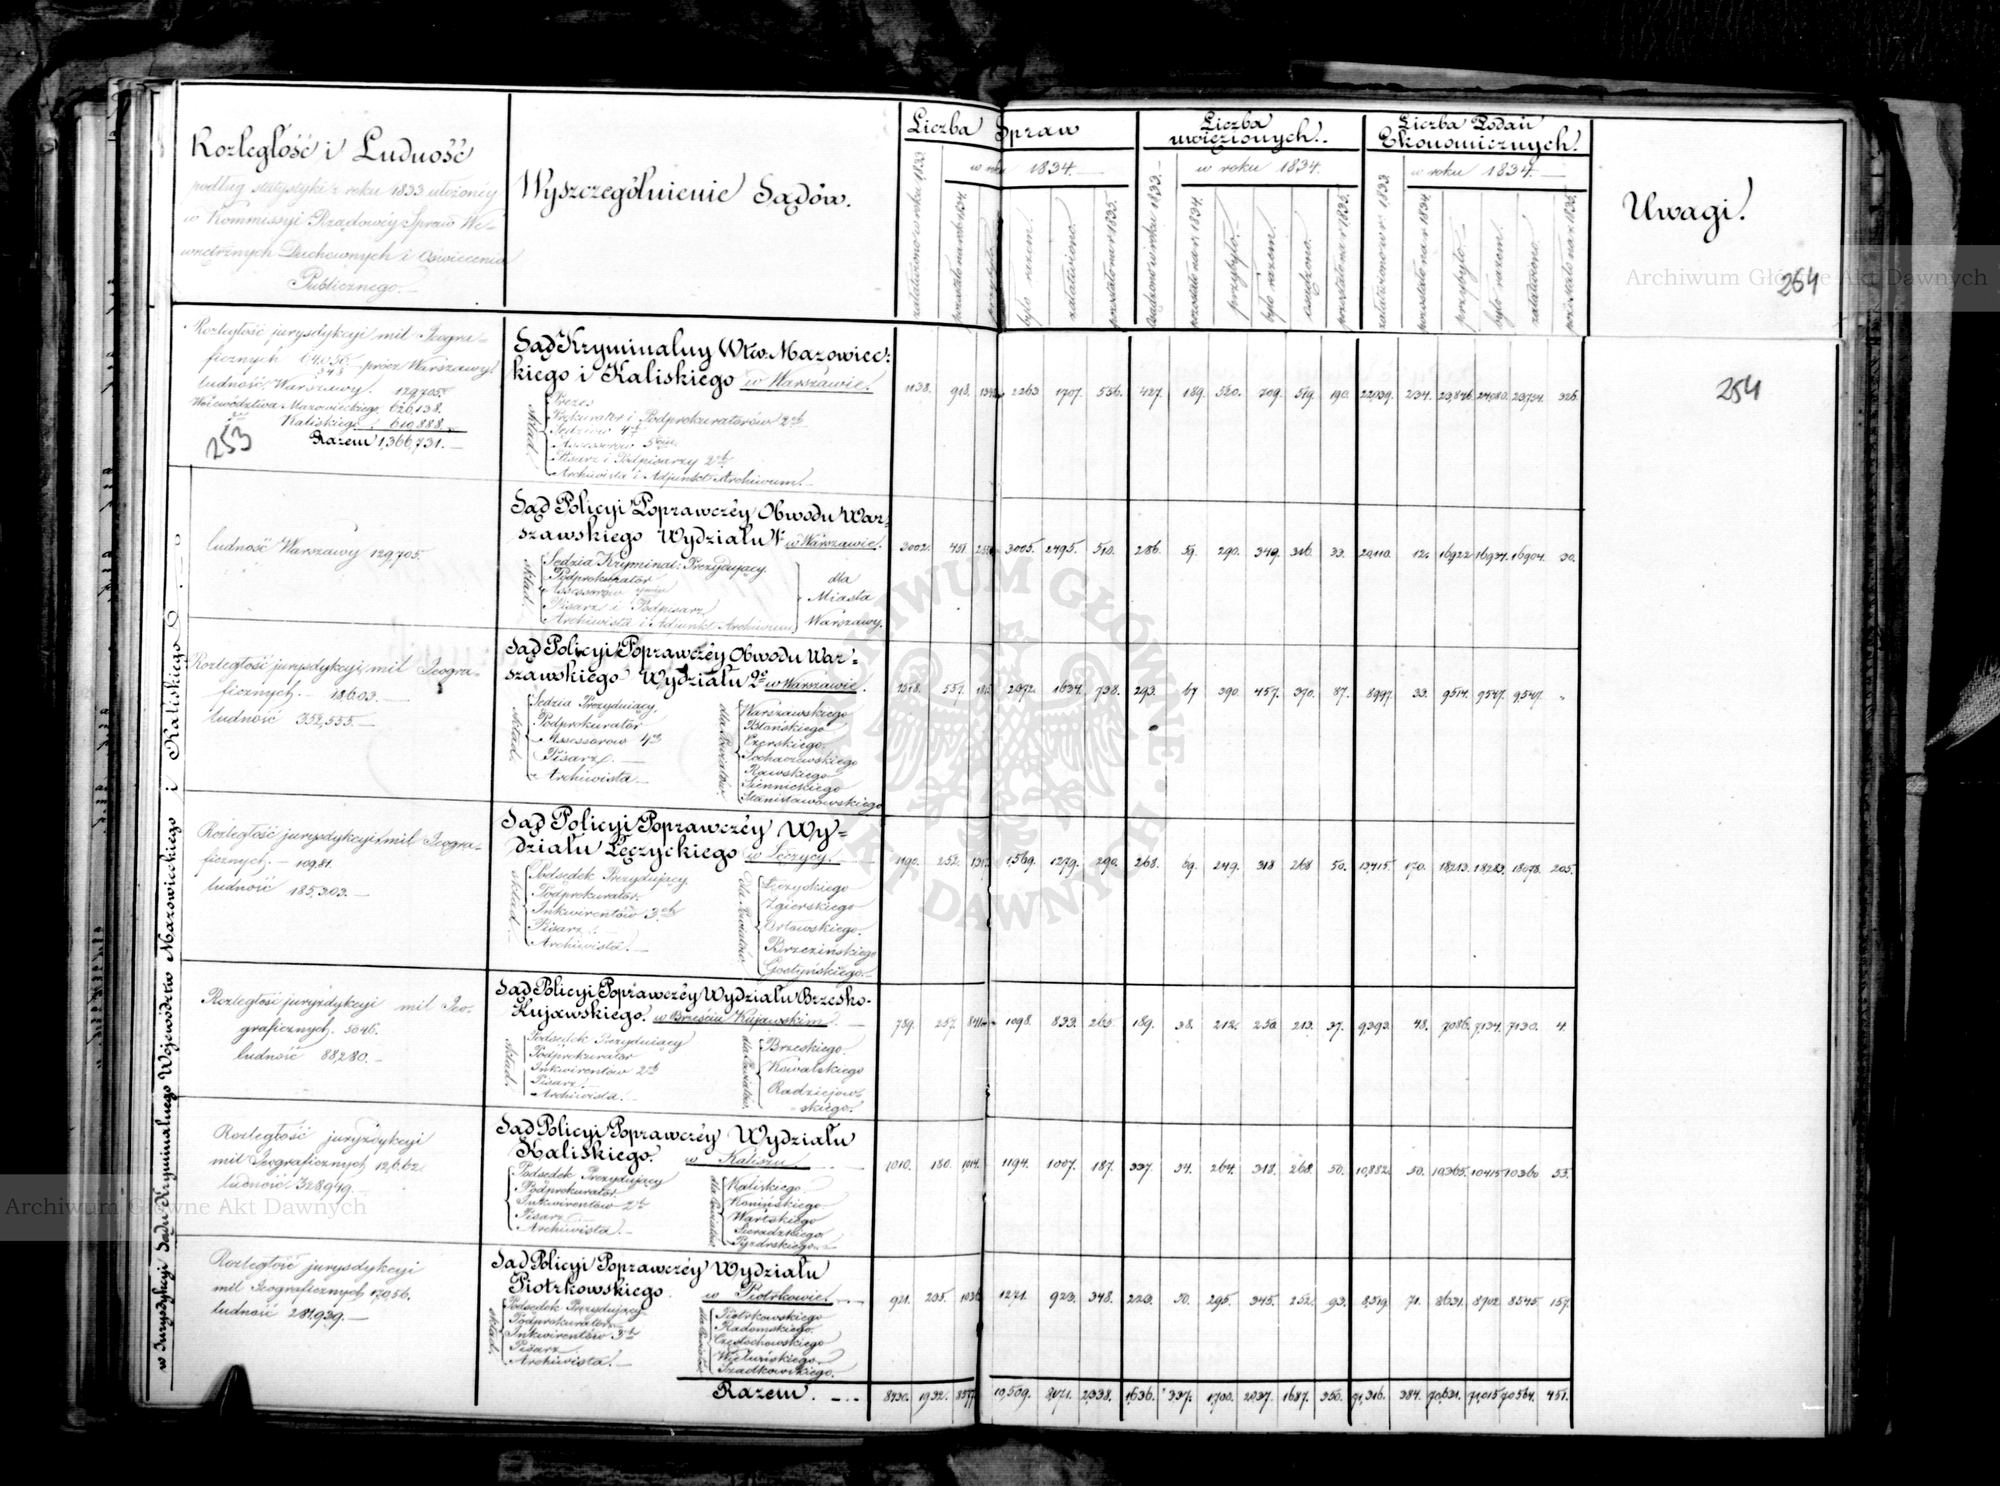 Rozległość i Ludność
podług statystyki z roku 1833 ułożoney
w Kommissyi Rządowéy Spraw We-
wnętrznych Duchownych i Oświecenia
Publicznego.
Wyszczególnienie Sądów.
Liczba Spraw
załatwiono w roku 1833.
w roku 1834.
pozostało na rok 1834.
przybyło
było razem.
załatwiono.
pozostało na r. 1835.
Liczba
uwięzionych.
osądzono w roku 1833.
w roku 1834.
pozostało na r. 1834.
przybyło.
było razem.
osądzono.
pozostało na r. 1835.
Liczba Podań
Ekonomicznych.
załatwiono w r. 1833
w roku 1834.
pozostało na r. 1834.
przybyło.
było razem.
załatwiono.
pozostało na r. 1835.
Uwagi.
264
254
253
w Jurysdykcyi Sądu Kryminalnego Województw Mazowieckiego i Kaliskiego
Rozległość jurysdykcyi mil Jeogra-
ficznych prócz Warszawy
ludność Warszawy. 129,705.
Województwa Mazowieckiego 626,138.
Kaliskiego 610,888.
Razem 1,366,731.
Sąd Kryminalny Wtw. Mazowiec-
kiego i Kaliskiego w Warszawie.
skład
Prezes
Prokurator i Podprokuratorów 2ch
Sędziów 4ch
Assessorów
Pisarz i Podpisarzy 2ch
Archiwista i Adjunkt Archiwum.
1138. 918. 2263. 1707. 556. 427. 189. 520. 709. 519. 190. 22,039. 234. 23,846. 24,080. 23,754. 326.
ludność Warszawy 129,705.
Sąd Policyi Poprawczéy Obwodu War-
szawskiego Wydziału 1o w Warszawie.
skład.
Sędzia Kryminal: Prezydujący
Podprokurator
Assessorów
Pisarz i Podpisarz
Archiwista i Adjunkt Archiwum
dla
Miasta
Warszawy.
3002. 451. 3005. 2495. 510. 286. 59. 290. 349. 316. 33. 20,110. 12. 16922. 16934. 16904. 30.
Rozległość jurysdykcyi mil Jeogra-
ficznych. 186.03.
ludność 352,555.
Sąd Policyi Poprawczéy Obwodu War-
szawskiego Wydziału 2o w Warszawie.
skład.
Sędzia Prezydujący
Podprokurator
Assessorów
Pisarz.
Archiwista.
dla Powiatów.
Warszawskiego
Błońskiego
Czerskiego.
Sochaczewskiego
Rawskiego
Siennickiego
Stanisławowskiego
557. 2372. 1634. 738. 293. 67. 390. 457. 370. 87. 8997. 33. 9514. 9547. 9547. "
Rozległość jurysdykcyi mil Jeogra-
ficznych. 109.81.
ludność 185,303.
Sąd Policyi Poprawczéy Wy-
działu Łęczyckiego w Łęczycy.
skład
Podsędek Prezydujący
Podprokurator.
Inkwirentów 3ch
Pisarz.
Archiwista.
dla Powiatów.
Łęczyckiego
Zgierskiego
Orłowskiego.
Brzezińskiego
Gostyńskiego.
1190. 252. 1,569. 1279. 290. 268. 69. 249. 318 268 50. 13,415. 170. 18213. 18283. 18078. 205.
Rozległość jurysdykcyi mil Jeo-
graficznych. 50.46.
ludność 88,280.
Sąd Policyi Poprawczéy Wydziału Brzesko-
Kujawskiego. w Brześciu Kujawskim.
skład.
Podsędek Prezydujący
Podprokurator
Inkwirentów 2ch
Pisarz.
Archiwista.
dla Powiatów.
Brzeskiego.
Kowalskiego
Radziejow-
skiego.
789. 257. 841. 1098. 833. 265. 189. 38. 212. 250. 213. 37. 9,393. 48. 7086. 7134. 7130. 4.
Rozległość jurysdykcyi
mil Jeograficznych 126.62.
ludność 328,949.
Sąd Policyi Poprawczéy Wydziału
Kaliskiego. w Kaliszu
Podsędek Prezydujący
Podprokurator
Inkwirentów 2ch
Pisarz
Archiwista.
dla Powiatów
Kaliskiego
Konińskiego
Wartskiego
Sieradzkiego
Pyzdrskiego
1010. 180. 1014. 1194. 1007. 187. 337. 54. 264. 318. 268. 50. 10,882. 50. 10365. 10415. 10360 55.
Rozległość jurysdykcyi
mil Jeograficznych 170.56.
ludność 281,939.
Sąd Policyi Poprawczéy Wydziału
Piotrkowskiego. w Piotrkowie.
skład.
Podsędek Prezydujący
Podprokurator
Inkwirentów 3ch
Pisarz.
Archiwista.
dla Powiatów
Piotrkowskiego
Radomskiego.
Częstochowskiego
Wieluńskiego.
Szadkowskiego.
921. 235. 1036. 1271. 923. 348. 223. 50. 295. 345. 252. 93. 8,519. 71. 8631. 8702. 8545. 157.
Razem. 1932. 8577 10,509. 8171. 2338. 1,636. 337. 1,700. 2037. 1687. 350. 91,316. 384. 70,631. 71,015. 70564. 451.
Archiwum Główne Akt Dawnych
Archiwum Główne Akt Dawnych
ARCHIWUM GŁÓWNE AKT DAWNYCH